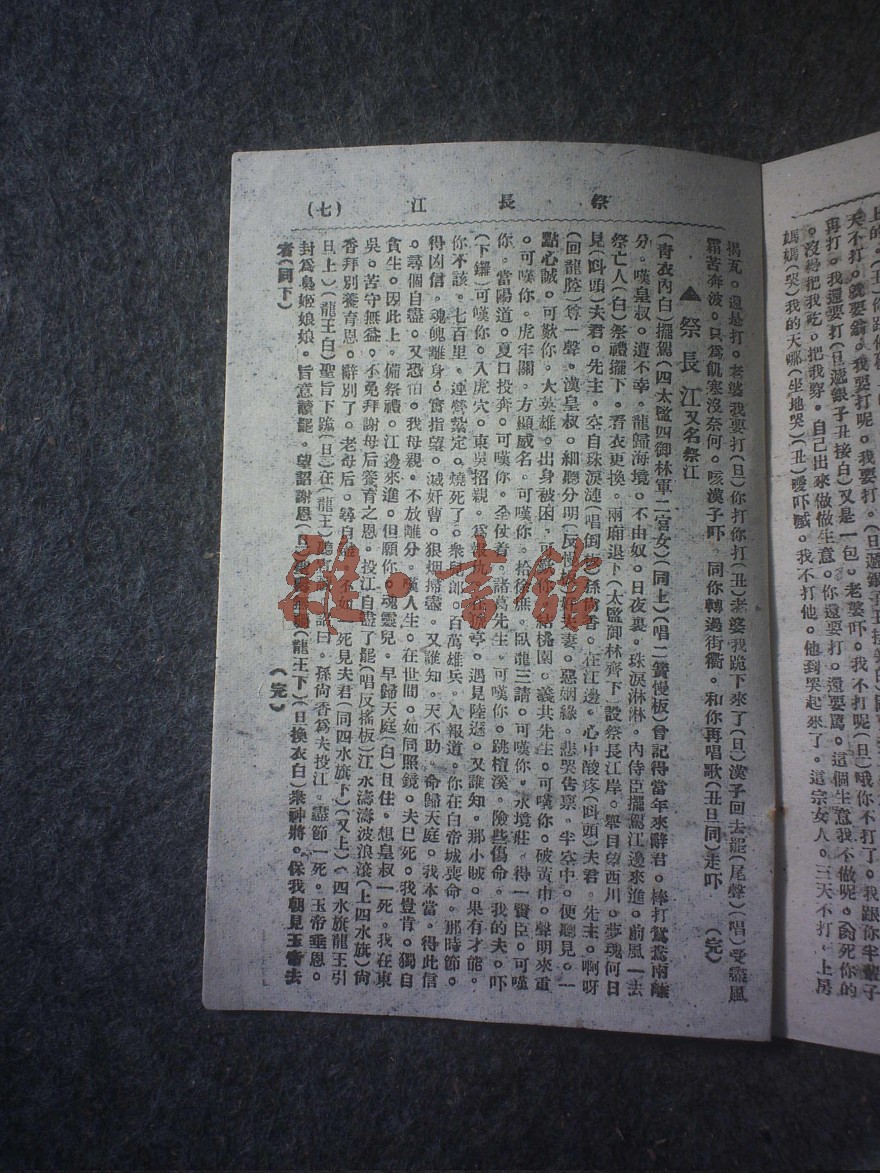 上的
天不打。就要翁。我要打呢。我要打。
再打。我還要打(旦遞銀子丑接白)又是一包。老婆吓。我不打呢(旦)哦你不打了。我跟你半輩子
。沒得把我吃。把我穿。自己出來做做生意。你還要打。還要罵。這個生意我不做呢。死你的
媽媽(哭)我的天哪(坐地哭)(丑)噯吓喊。我不打他。他到哭起來了。這宗女人。三天不打。上房
祭長江 (七)
揭瓦。還是打。老婆我要打(旦)你打你打(丑)老婆我跪下來了(旦)漢子回去罷(尾聲)(唱)受盡風
霜苦奔波。只爲飢寒沒奈何。咳漢子吓。同你轉過街衢。和你再唱歌(丑旦同)走吓 (完)
▲祭長江 又名祭江
(青衣內白)擺駕(四太監四御林軍二宮女)(同上)(唱二簧慢板)曾記得當年來辭君。棒打鴛鴦南離
分。嘆皇叔。遭不幸。龍歸海境。不由奴。日夜裏。珠淚淋淋。內侍臣擺駕江邊來進。前風一去
祭亡人(白)祭禮擺下。看衣更換。兩廂退下(太監御林齊下)設祭長江岸。舉目望西川。夢魂何日
見(叫頭)夫君。先主。空自珠淚漣(唱倒板)孫尚香。在江邊。心中酸疼(叫頭)夫君。先主。啊呀
(回龍腔)尊一聲。漢皇叔。細聽分明(反慢板)好夫妻。惡姻緣。悲哭告稟。半空中。便聽見。一
點心誠。可歎你。大英雄。出身被困。可嘆你。結桃園。義共先生。可嘆你。破黃巾。聲明來重
。可嘆你。虎牢關。方顯威名。可嘆你。拾徐無。臥龍三請。可嘆你。水境莊。得一賢臣。可嘆
你。當陽道。夏口投奔。可嘆你。全仗着。諸葛先生。可嘆你。跳檀溪。險些傷命。我的夫。吓
(下鑼)可嘆你。入虎穴。東吳招親。爲報仇。在猇亭。遇見陸遜。又誰知。那小賊。果有才能。
你不該。七百里。連營紮定。燒死了。衆兒郎。百萬雄兵。人報道。你在白帝城喪命。那時節。
得凶信。魂魄離身。實指望。滅奸曹。狠烟掃盡。又誰知。天不助。命歸天庭。我本當。得此信
。尋個自盡。又恐怕。我母親。不放離分。嘆人生。在世間。如同照鏡。夫已死。我豈肯。獨自
貪生。因此上。備祭禮。江邊來進。但願你。魂靈兒。早歸天庭(白)且住。想皇叔一死。我在東
吳。苦守無益。不免拜謝母后養育之恩。投江自盡了罷(唱反搖板)江水濤濤波浪滾(上四水旗)向
香拜別養育恩。辭別了。老母后。尋自盡。不如一死見夫君(同四水旗下)(又上)(四水旗龍王引
旦上)(龍王白)聖旨下跪(旦)在(龍王)聽宣讀詔曰。孫尚香爲夫投江。盡節一死。玉帝垂恩。
封爲梟姬娘娘。旨意讀罷。望詔謝恩(旦)(龍王下)(旦換衣白)衆神將。保我朝見玉帝去
者(同下) (完)
雜·書館